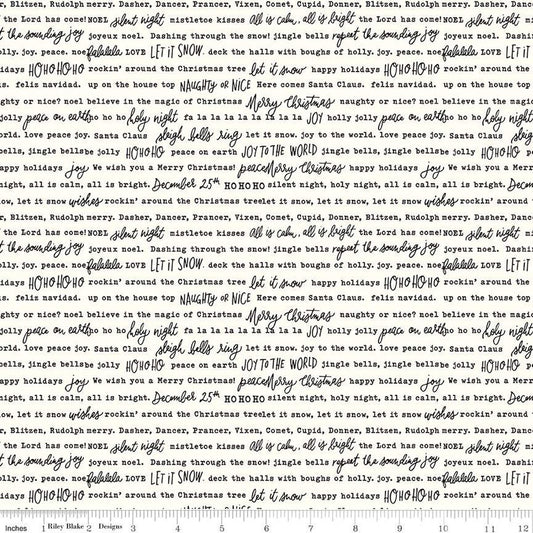 r, Blitzen, Rudolph merry. Dasher, Dancer, Prancer, Vixen, Comet, Cupid, Donner, Blitzen, Rudolph merry. Dasher, Dancer
the Lord has come! NOEL silent night mistletoe kisses All is calm, all is bright the Lord has come! NOEL silent night mistletoe
t the sounding joy joyeux noel. Dashing through the snow! jingle bells repeat the sounding joy joyeux noel. Dashi
olly. joy. peace. noe falalala LOVE LET IT SNOW. deck the halls with boughs of holly. joy. peace. noe falalala LOVE LET IT
idays HO HO HO HO rockin' around the Christmas tree let it snow happy holidays HO HO HO HO rockin' around the
us. feliz navidad. up on the house top NAUGHTY OR NICE Here comes Santa Claus. feliz navidad. up on the house top
ghty or nice? noel believe in the magic of Christmas Merry Christmas naughty or nice? noel believe in the magic
jolly peace on earth ho ho ho holy night fa la la la la la la la la JOY holly jolly peace on earth ho ho ho holy night
orld. love peace joy. Santa Claus sleigh bells ring let it snow. joy to the world. love peace joy. Santa Claus sleig
bells, jingle bells be jolly HO HO HO peace on earth JOY TO THE WORLD jingle bells, jingle bells be jolly HO HO HO peace on
appy holidays joy We wish you a Merry Christmas! peace Merry Christmas happy holidays joy We wish you a Merr
night, all is calm, all is bright. December 25th HO HO HO silent night, holy night, all is calm, all is bright. Decem
ow, let it snow wishes rockin' around the Christmas tree let it snow, let it snow, let it snow wishes rockin' around
r, Blitzen, Rudolph merry. Dasher, Dancer, Prancer, Vixen, Comet, Cupid, Donner, Blitzen, Rudolph merry. Dasher,
the Lord has come! NOEL silent night mistletoe kisses All is calm, all is bright the Lord has come! NOEL silent night
t the sounding joy joyeux noel. Dashing through the snow! jingle bells repeat the sounding joy joyeux noel. Dashi
olly. joy. peace. noe falalala LOVE LET IT SNOW. deck the halls with boughs of holly. joy. peace. noe falalala LOVE LET IT
idays HO HO HO HO rockin' around the Christmas tree let it snow happy holidays HO HO HO HO rockin' around the
us. feliz navidad. up on the house top NAUGHTY OR NICE Here comes Santa Claus. feliz navidad. up on the house top
ghty or nice? noel believe in the magic of Christmas Merry Christmas naughty or nice? noel believe in the magic
jolly peace on earth ho ho ho holy night fa la la la la la la la la JOY holly jolly peace on earth ho ho ho holy night
orld. love peace joy. Santa Claus sleigh bells ring let it snow. joy to the world. love peace joy. Santa Claus sleig
bells, jingle bells be jolly HO HO HO peace on earth JOY TO THE WORLD jingle bells, jingle bells be jolly HO HO HO peace on
appy holidays joy We wish you a Merry Christmas! peace Merry Christmas happy holidays joy We wish you a Merr
night, all is calm, all is bright. December 25th HO HO HO silent night, holy night, all is calm, all is bright. Decem
ow, let it snow wishes rockin' around the Christmas tree let it snow, let it snow, let it snow wishes rockin' around
r, Blitzen, Rudolph merry. Dasher, Dancer, Prancer, Vixen, Comet, Cupid, Donner, Blitzen, Rudolph merry. Dasher,
the Lord has come! NOEL silent night mistletoe kisses All is calm, all is bright the Lord has come! NOEL silent night
t the sounding joy joyeux noel. Dashing through the snow! jingle bells repeat the sounding joy joyeux noel. Dashi
olly. joy. peace. noe falalala LOVE LET IT SNOW. deck the halls with boughs of holly. joy. peace. noe falalala LOVE LET IT
idays HO HO HO HO rockin' around the Christmas tree let it snow happy holidays HO HO HO HO rockin' around the
Inches 1 Riley Blake 2 Designs 3 4 5 6 7 8 9 10 11 12